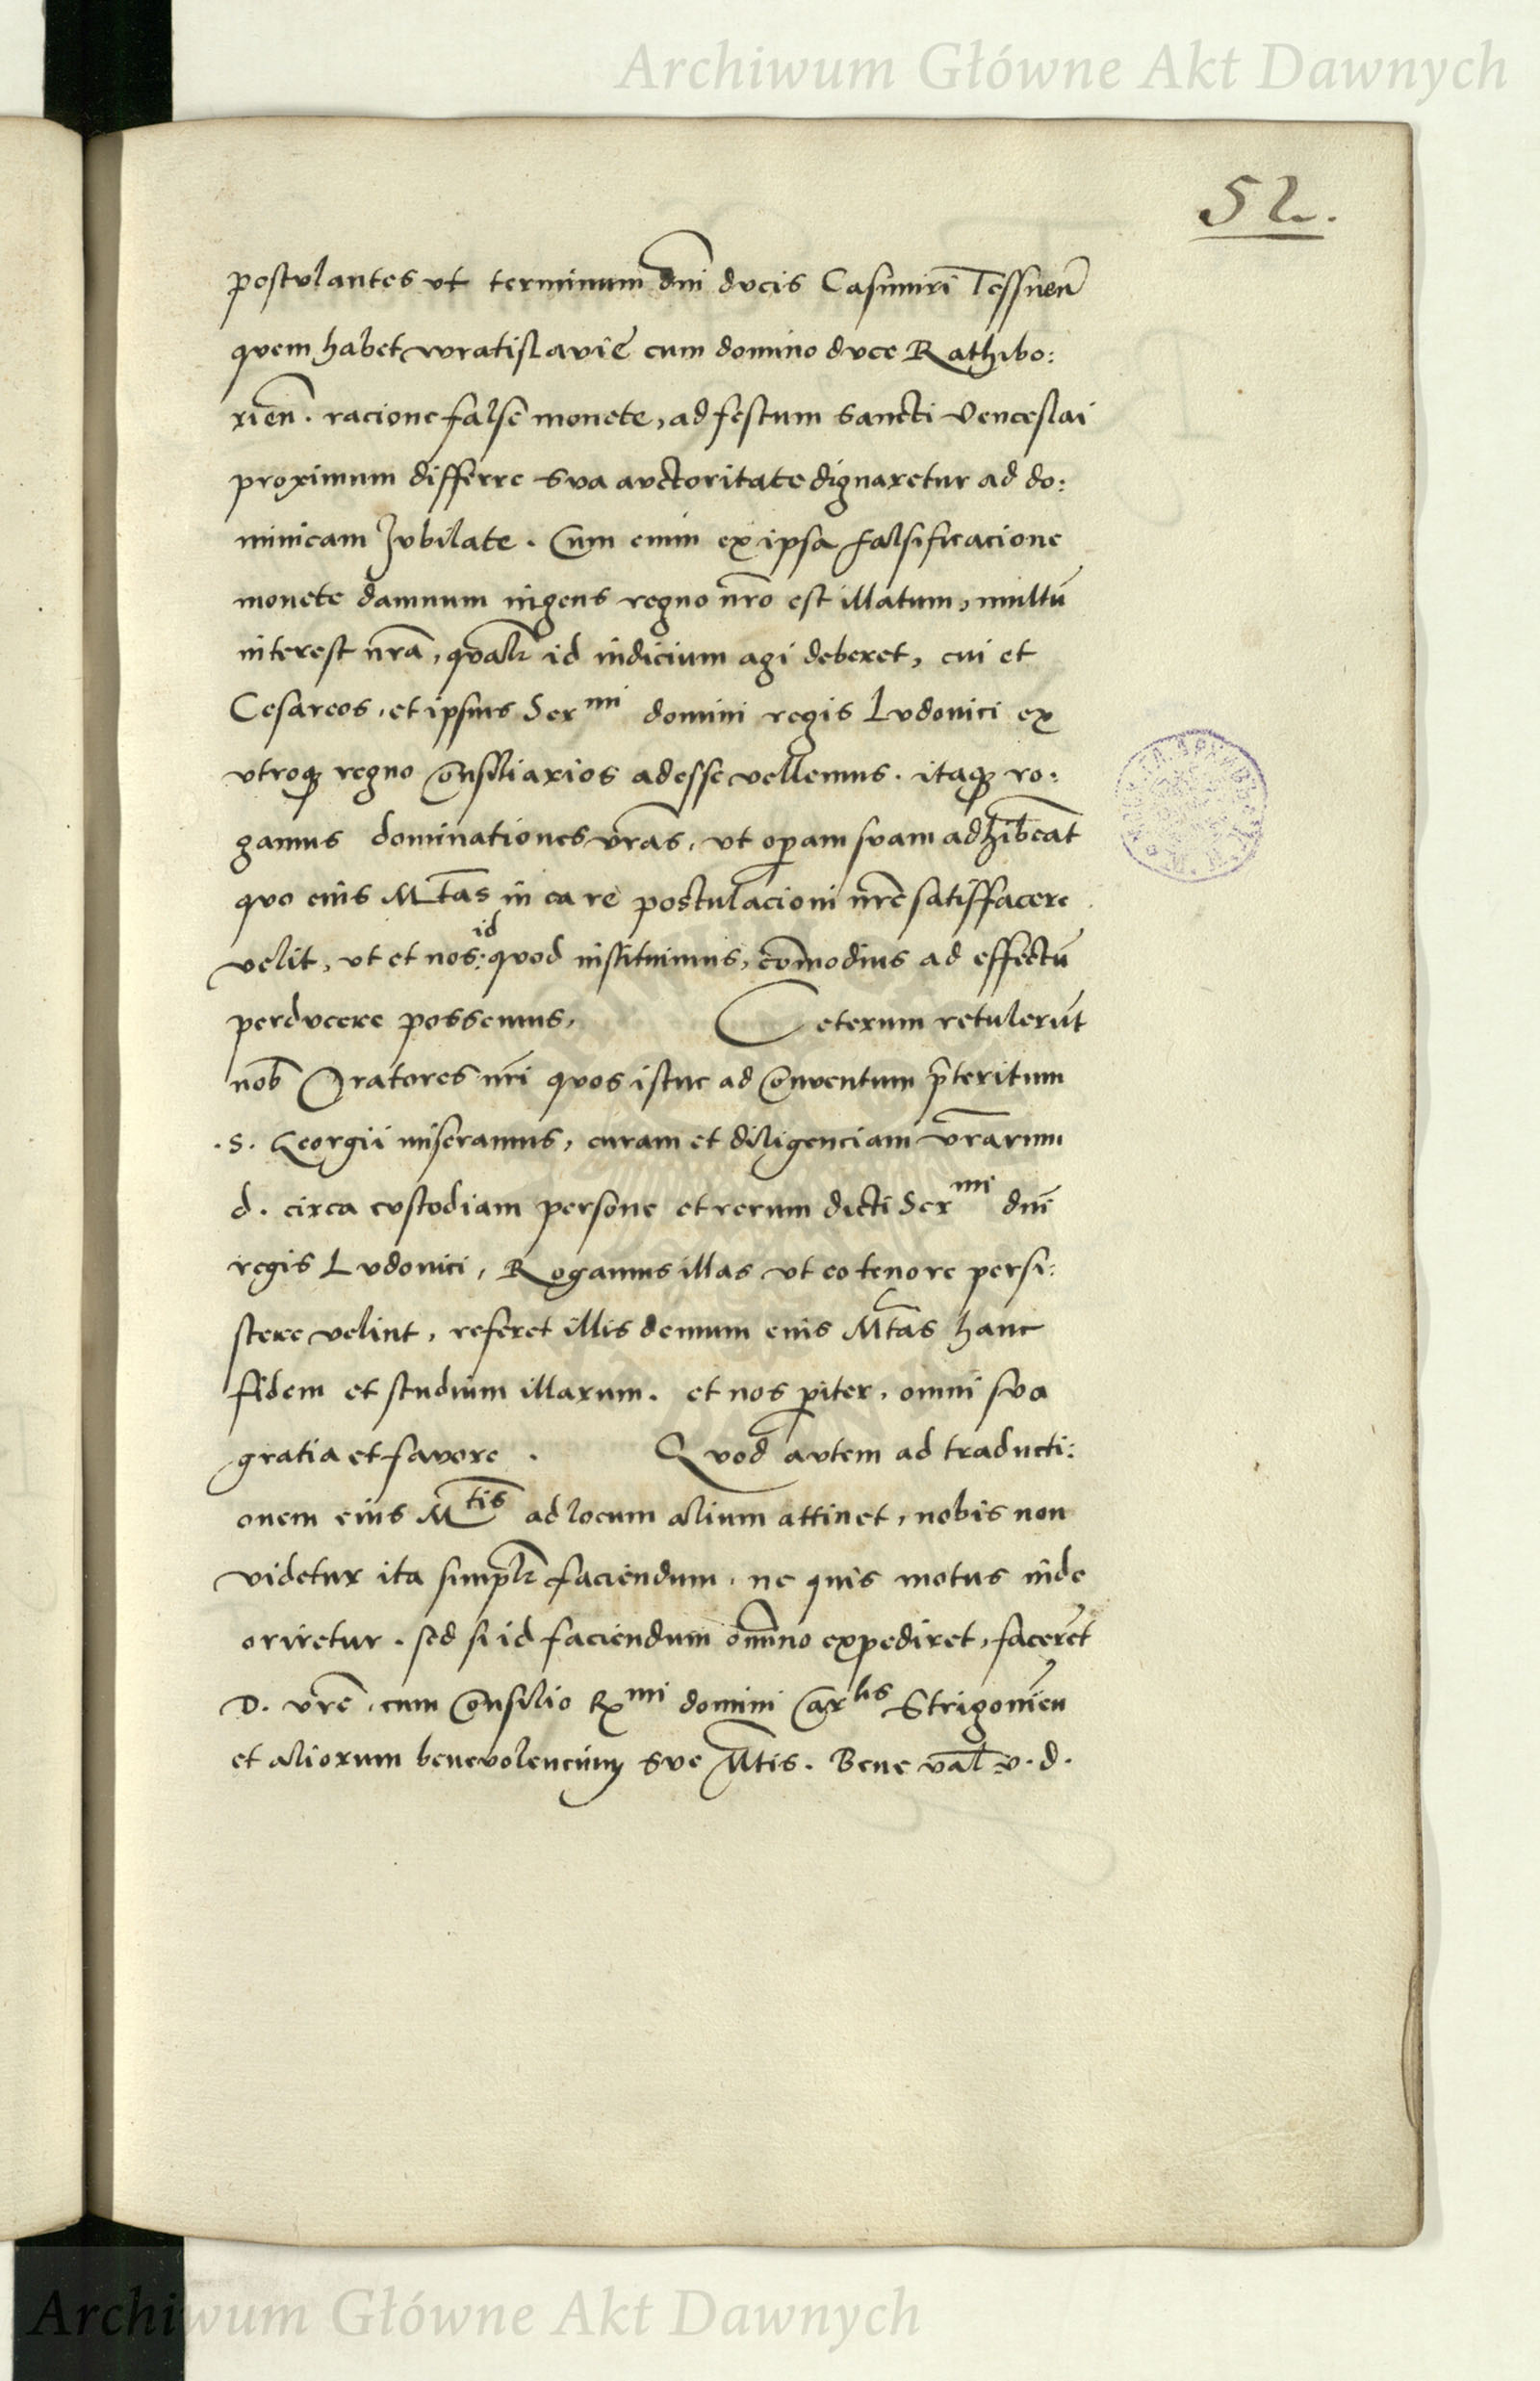 Archiwum Główne Akt Dawnych
52.
postulantes vt terminum dni ducis Casimiri Tessnen
quem habet wratislavie cum domino duce Rathibo:
rien. racione false monete, ad festum Sancti Venceslai
proximum differre sua auctoritate dignaretur ad do:
minicam Jubilate. Cum enim ex ipsa falsificacione
monete damnum ingens regno nro est illatum, multu
interest nra, qualr id indicium agi deberet, cui et
Cesareos, et ipsius Ser mi domini regis Ludovici ex
vtroq regno consiliarios adesse vellemus. itaq ro:
gamus dominationes vras, vt opam suam adhibeat
quo eius Mtas in ea re postulacioni nre satisfacere
velit, vt et nos: id quod instituimus, comodius ad effectu
perducere possemus, Ceterum retulerut
nob Oratores nri quos istuc ad conventum pteritum
.S. Georgii miseramus, curam et diligenciam vrarum
d. circa custodiam persone et rerum dicti Ser mi dni
regis Ludovici, Rogamus illas vt eo tenore persi:
stere velint, referet illis demum eius Mtas hanc
fidem et studium illarum. et nos piter, omni sua
gratia et favore. Quod autem ad traducti:
onem eius M tis ad locum alium attinet, nobis non
videtur ita simplr faciendum, ne quis motus inde
oriretur. sed si id faciendum omnino expediret, faceret
D. vre, cum consilio Rx mi domini Car lis Strigonien
et aliorum benevolencium Sue Mtis. Bene val v. d.
Archiwum Główne Akt Dawnych